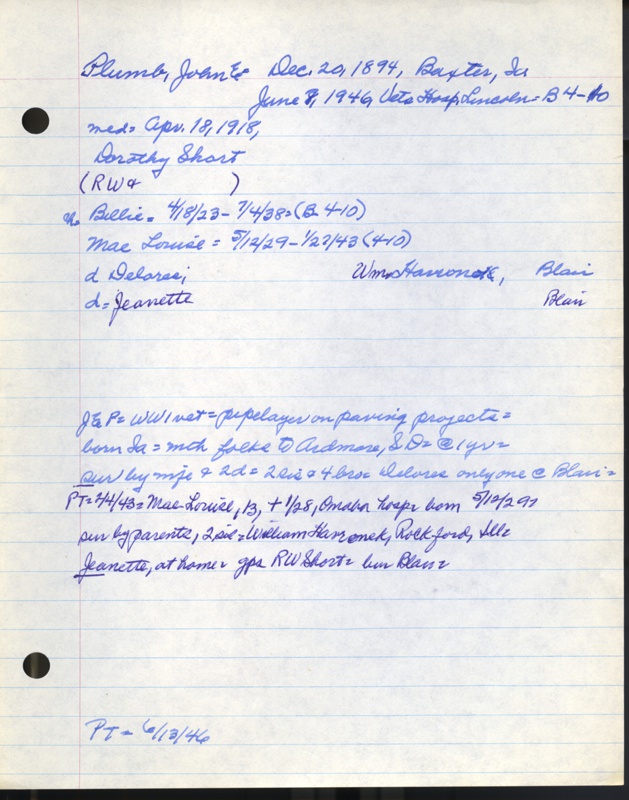 Plumb, John E. Dec. 20, 1894, Baxter, Ia
June 7, 1946, Vets Hosp, Lincoln = B 4-10
med = Apr. 18, 1918,
Dorothy Short
(RW & )
Billie = 4/18/23 - 7/4/38 = (B 4-10)
Mae Louise = 5/12/29 - 1/27/43 (4-10)
d Delores; Wm. Havronek, Blair
d = Jeanette Blair
JEP = WW1 vet = pipelayer on paving projects =
born Ia = mth folks to Ardmore, S.D. = @ 1 yr =
sur by wife & 2d = 2 sis & 4 bro = Delores only one @ Blair =
PT = 2/4/43 = Mae Louise, 13, + 1/28, Omaha hosp = born 5/12/29 =
sur by parents, 2 sis = William Havronek, Rockford, Ill =
Jeanette, at home = gps RW Short = bur Blair =
PT = 6/13/46